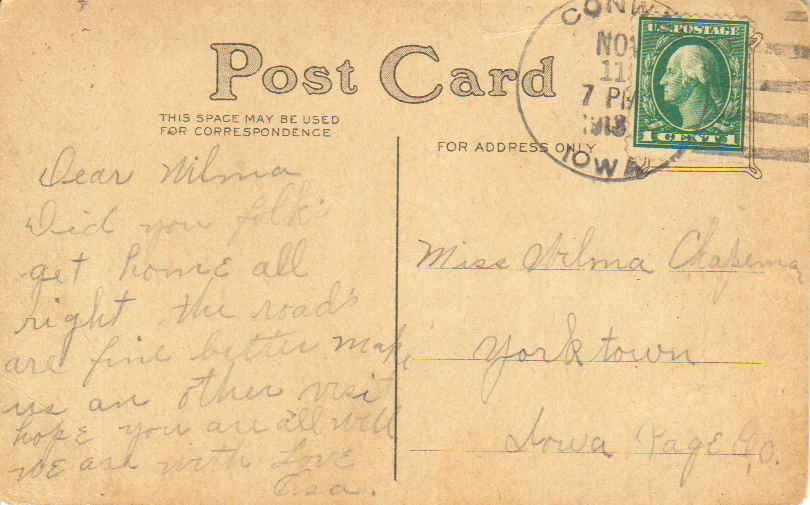 Post Card
THIS SPACE MAY BE USED
FOR CORRESPONDENCE
FOR ADDRESS ONLY
CONW
NOV
11
7 PM
1913
IOWA
U.S. POSTAGE
1 CENT 1
Dear Wilma
Did you folks
get home all
right the road's
are fine better make
us an other visit
hope you are all well
we are with Love
Miss Wilma
Yorktown
Iowa Page Co.